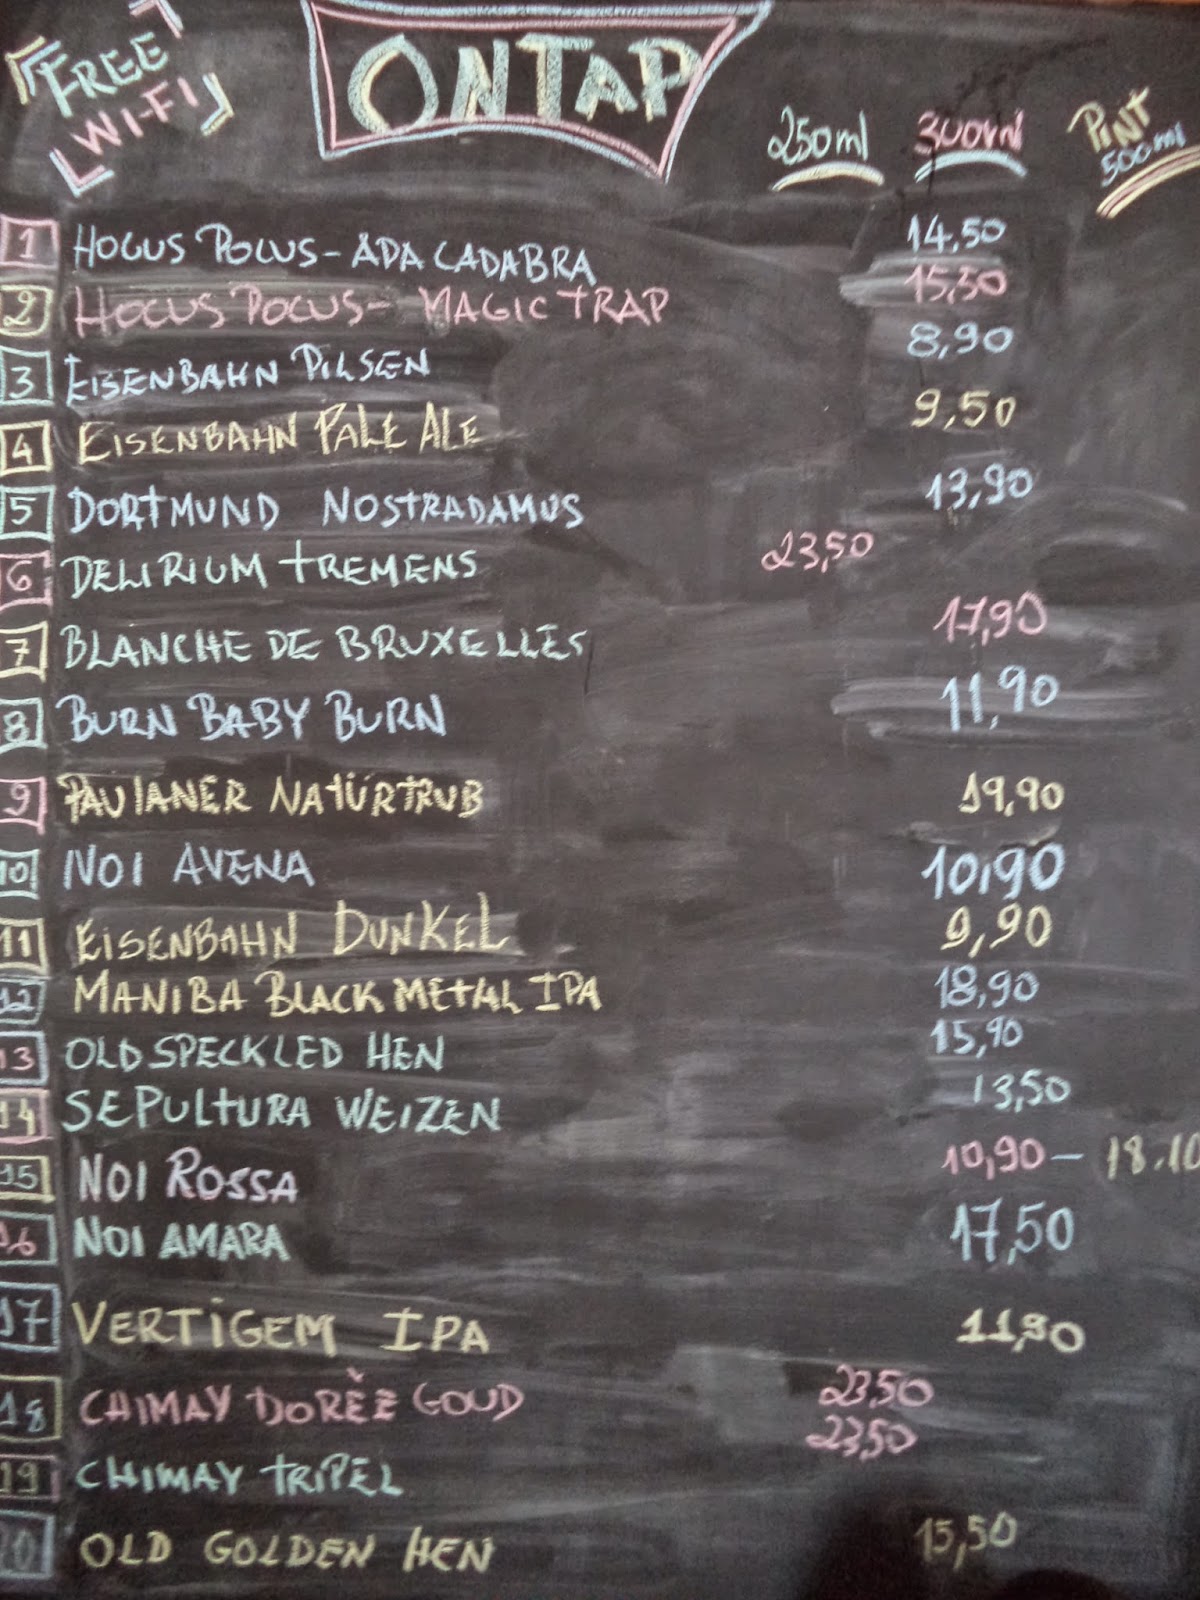 FREE
WI-FI
ONTAP
250ml 300ml PINT
500ml
1 HOCUS POCUS - APA CADABRA 14,50
2 HOCUS POCUS - MAGIC TRAP 15,50
3 EISENBAHN PILSEN 8,90
4 EISENBAHN PALE ALE 9,50
5 DORTMUND NOSTRADAMUS 13,90
6 DELIRIUM TREMENS 23,50
7 BLANCHE DE BRUXELLES 17,90
8 BURN BABY BURN 11,90
9 PAULANER NATÜRTRUB 19,90
10 NOI AVENA 10,90
11 EISENBAHN DUNKEL 9,90
12 MANIBA BLACK METAL IPA 18,90
13 OLD SPECKLED HEN 15,90
14 SEPULTURA WEIZEN 13,50
15 NOI ROSSA 10,90 - 18.10
16 NOI AMARA 17,50
17 VERTIGEM IPA 11,90
18 CHIMAY DORÈE GOUD 23,50
19 CHIMAY TRIPEL 23,50
20 OLD GOLDEN HEN 15,50